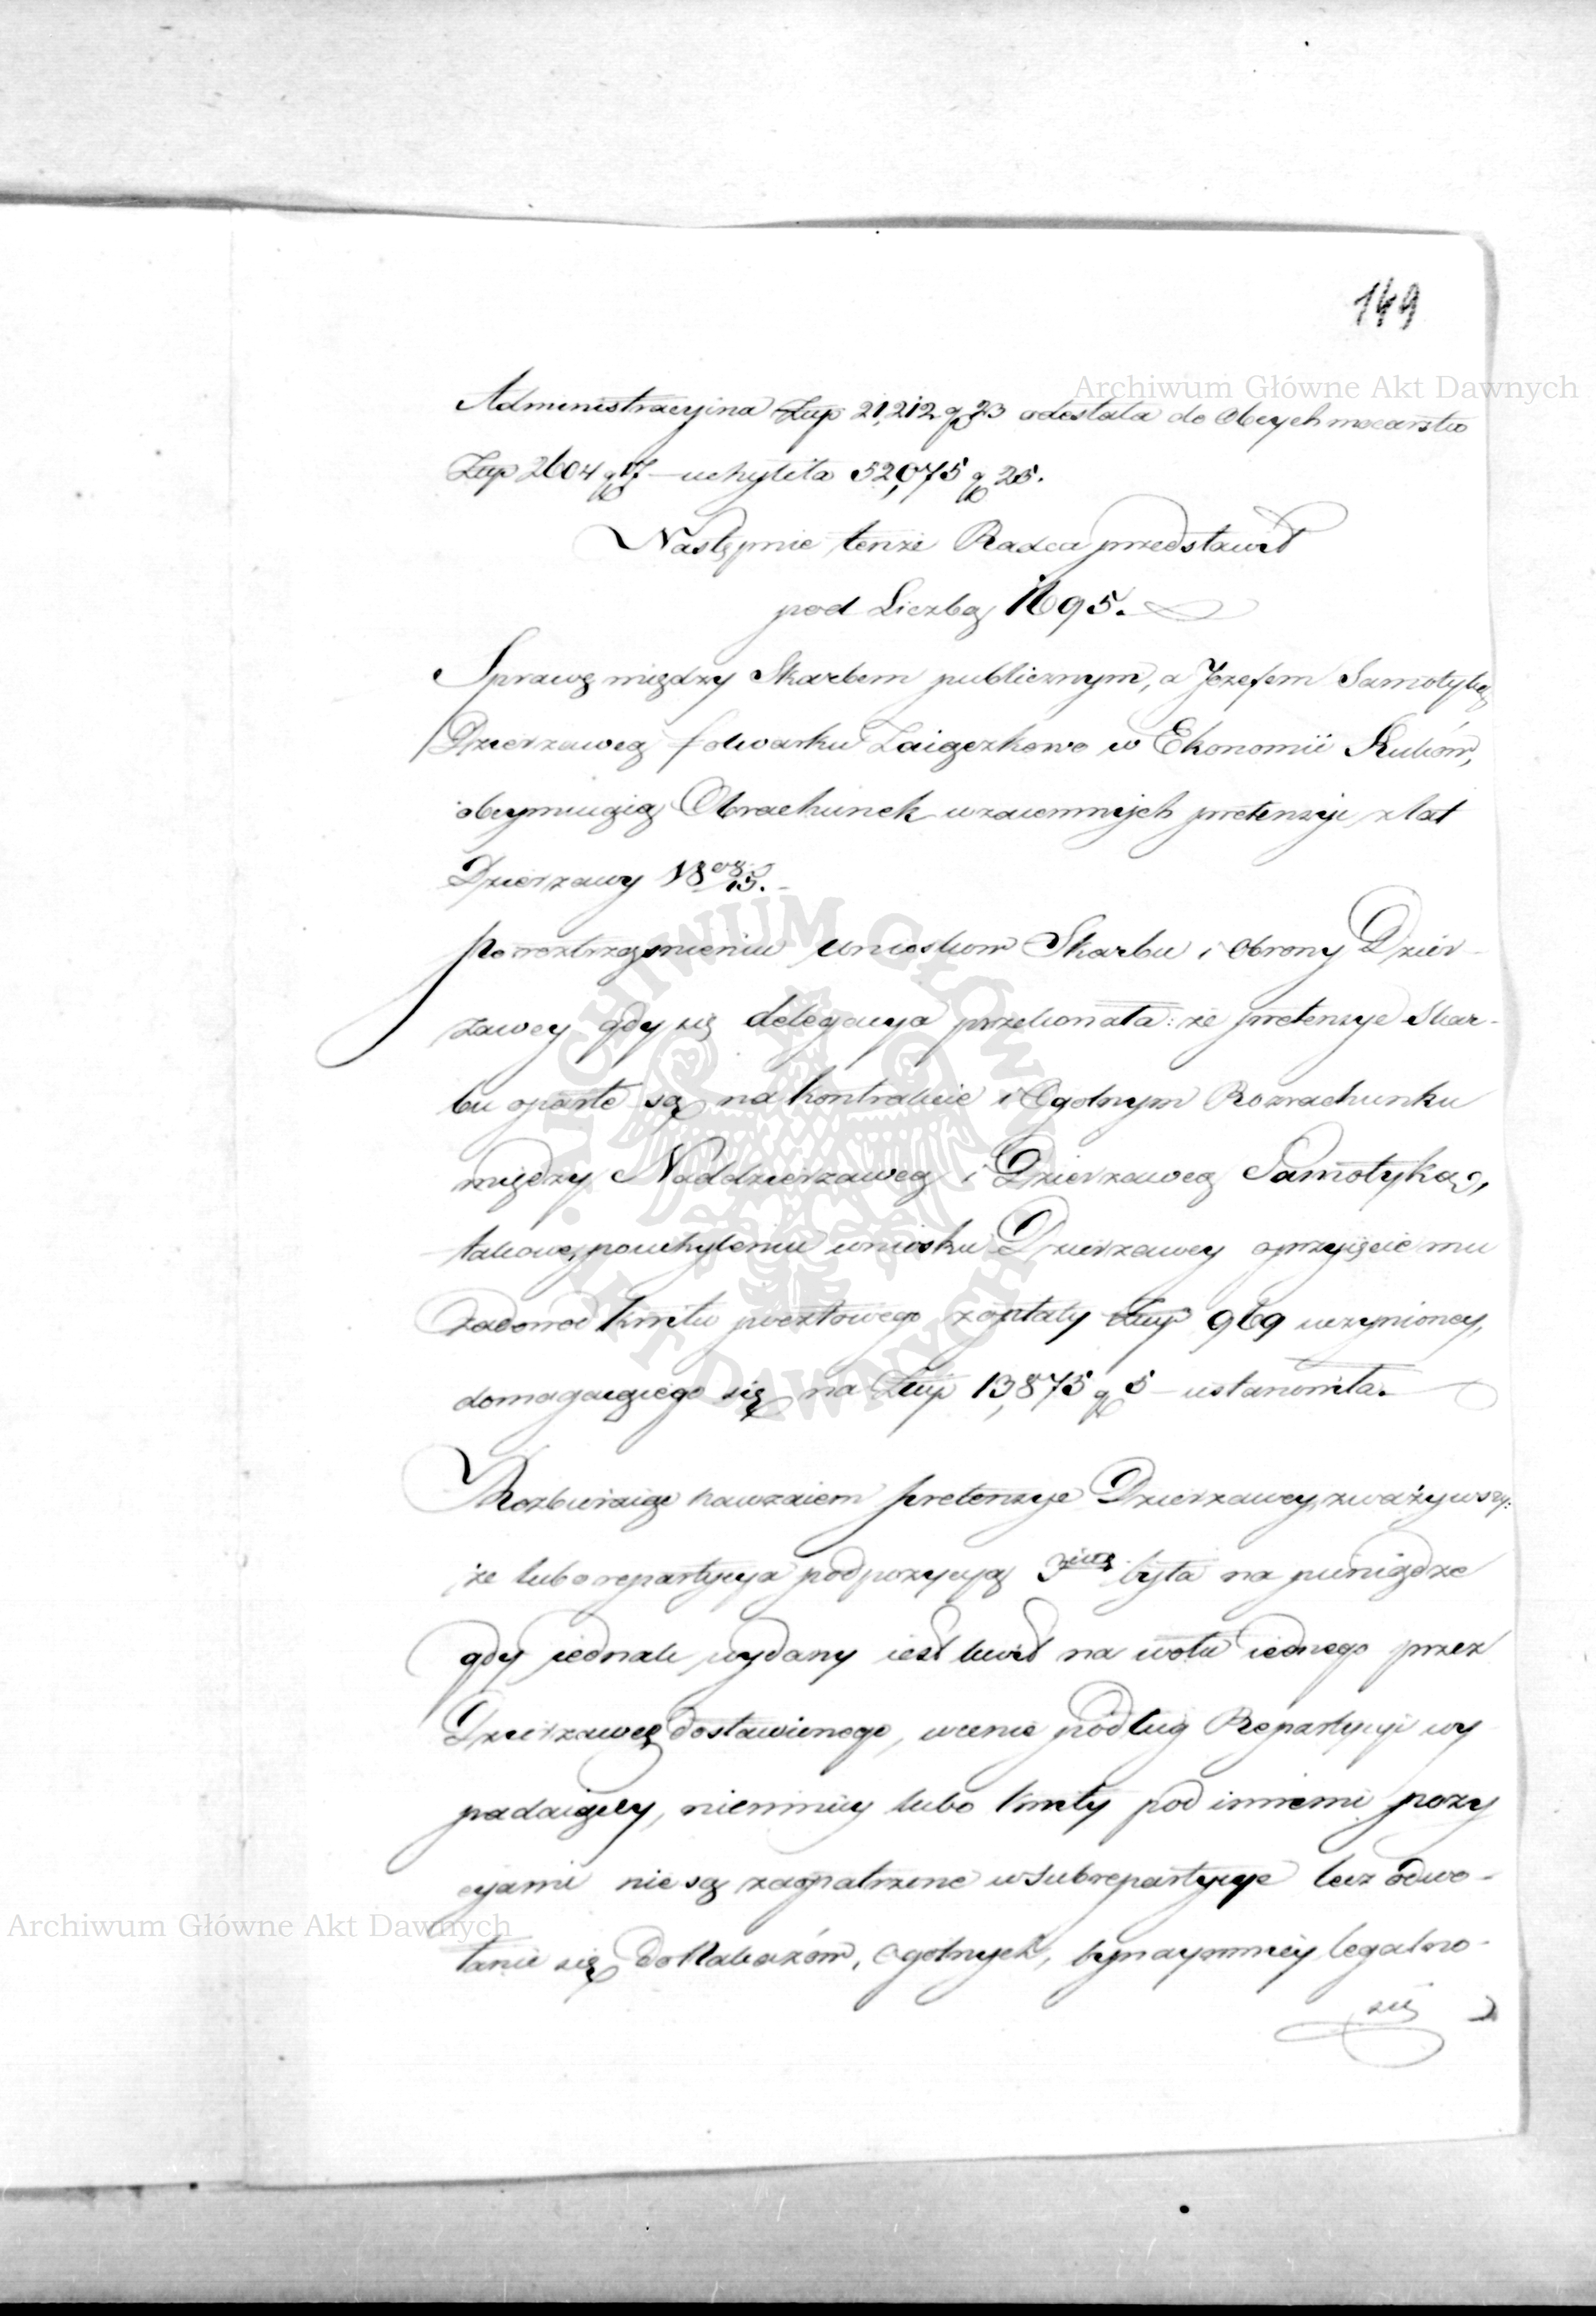 149
Archiwum Główne Akt Dawnych
Administracyina Złłp 21,212 g 23 odesłała do Obcych mocarstw
Złłp 2604 g 17 – uchyliła 52,075 g 25.
Następnie tenże Radca przedstawił
pod Liczbą 1695.
Sprawę między Skarbem publicznym, a Jozefem Samotyką
Dzierzawcą folwarku Zaigczkowo w Ekonomii
obeymuiącą Obrachunek wzaiemnych pretensyi z lat
Dzierzawy 18 08/15.
Po roztrząśnieniu wniosków Skarbu i Obrony Dzier-
zawcy gdy się delegacya przekonała: że pretensye Skar-
bu oparte są na kontrakcie i Ogolnym Rozrachunku
między Naddzierzawcą i Dzierzawcą Samotyką,
takowe, po uchyleniu wniosku Dzierzawcy o przyięcie mu
za dowod kwitu pocztowego z opłaty Złłp 969 uczynioney,
domagaiącego się na Złłp 13,875 g 5 – ustanowiła.
Rozbieraiąc nawzaiem pretensye Dzierzawcy, zważywszy:
że lubo repartycya pod pozycyą 3cią była na pieniądze
gdy iednak wydany iest kwit na wołu iednego przez
Dzierzawcę dostawionego, w cenie podług Repartycyi wy
padaiącey, niemniey lubo kwity pod innemi pozy
cyami nie są zaopatrzone w Subrepartycye lecz odwo-
Archiwum Główne Akt Dawnych
łanie się do Nakazów, Ogolnych, bynaymniey legalno-
ści
ARCHIWUM GŁÓWNE AKT DAWNYCH